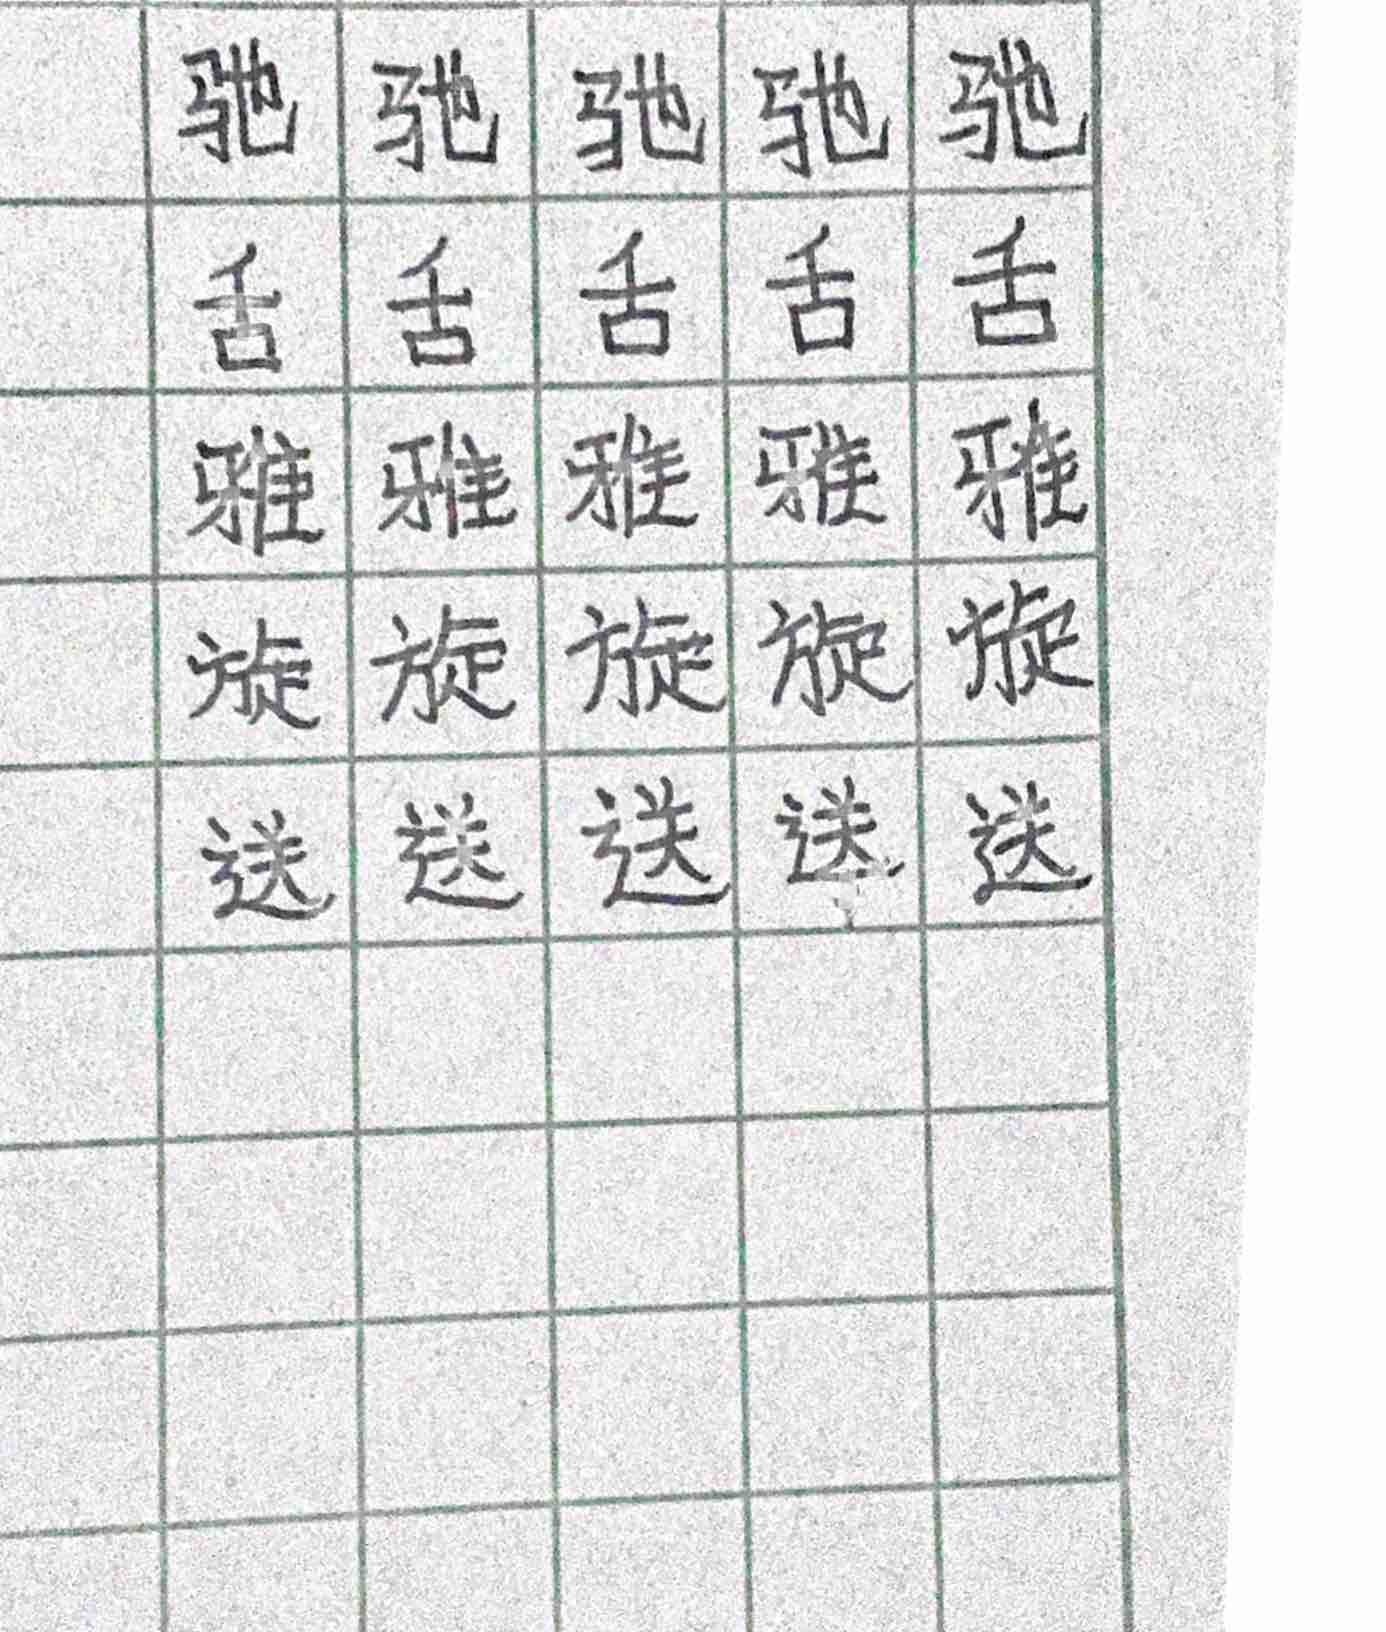 驰驰驰驰驰
舌舌舌舌舌
雅雅雅雅雅
旋旋旋旋旋
送送送送送